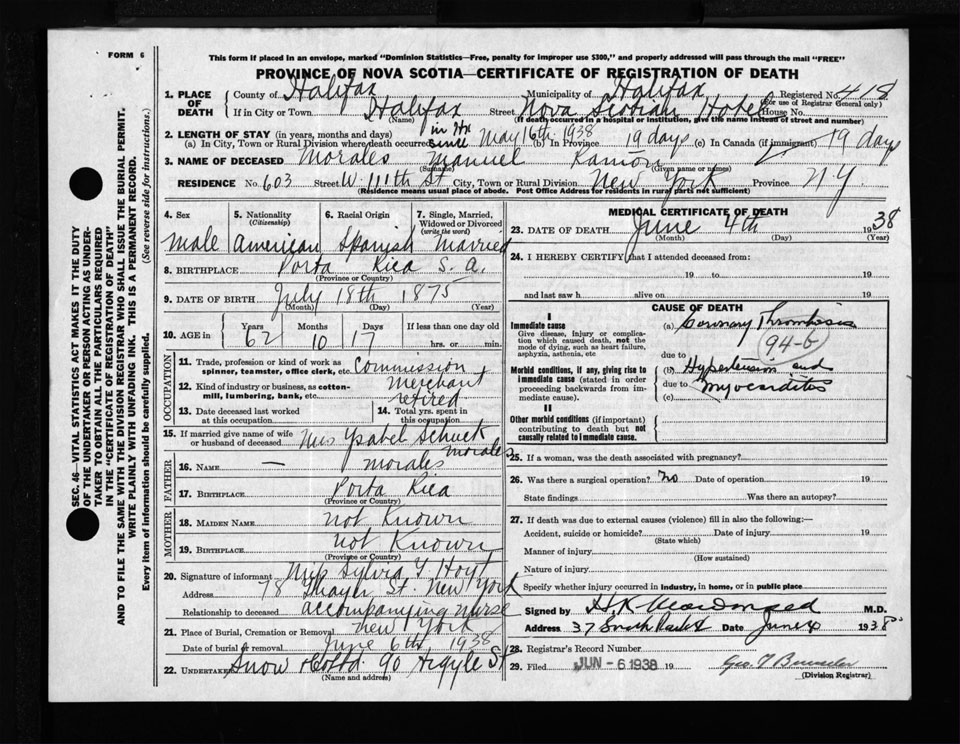 FORM 6
This form if placed in an envelope, marked "Dominion Statistics—Free, penalty for improper use $300," and properly addressed will pass through the mail "FREE"
PROVINCE OF NOVA SCOTIA—CERTIFICATE OF REGISTRATION OF DEATH
1. PLACE OF DEATH County of Halifax Municipality of Halifax Registered No. 418
(For use of Registrar General only)
If in City or Town Halifax Street Nova Scotian Hotel House No.
(Name) (If death occurred in a hospital or institution, give the name instead of street and number)
2. LENGTH OF STAY (in years, months and days)
(a) In City, Town or Rural Division where death occurred in Hx since May 16th 1938 (b) In Province 19 days (c) In Canada (if immigrant) 19 days
3. NAME OF DECEASED Morales Manuel Ramón
(Surname) (Given name or names)
RESIDENCE No. 603 Street W. 111th St City, Town or Rural Division New York Province N.Y.
(Residence means usual place of abode. Post Office Address for residents in rural parts not sufficient)
SEC. 46—VITAL STATISTICS ACT MAKES IT THE DUTY
OF THE UNDERTAKER OR PERSON ACTING AS UNDER-
TAKER TO OBTAIN ALL THE PARTICULARS REQUIRED
IN THE "CERTIFICATE OF REGISTRATION OF DEATH"
AND TO FILE THE SAME WITH THE DIVISION REGISTRAR WHO SHALL ISSUE THE BURIAL PERMIT.
WRITE PLAINLY WITH UNFADING INK. THIS IS A PERMANENT RECORD.
Every item of information should be carefully supplied. (See reverse side for instructions.)
4. Sex 5. Nationality (Citizenship) 6. Racial Origin 7. Single, Married, Widowed or Divorced (write the word)
Male American Spanish Married
8. BIRTHPLACE Porta Rica S. A.
(Province or Country)
9. DATE OF BIRTH July 18th 1875
(Month) (Day) (Year)
10. AGE in Years Months Days If less than one day old
62 10 17 hrs. or min.
OCCUPATION
11. Trade, profession or kind of work as spinner, teamster, office clerk, etc. Commission
12. Kind of industry or business, as cotton-mill, lumbering, bank, etc. Merchant
retired
13. Date deceased last worked at this occupation 14. Total yrs. spent in this occupation
15. If married give name of wife or husband of deceased Mrs Ysabel Schuck Morales
FATHER
16. Name — Morales
17. Birthplace Porta Rica
(Province or Country)
MOTHER
18. Maiden Name not Known
19. Birthplace not Known
(Province or Country)
20. Signature of informant Mrs Sylvia Y Hoyt
Address 78 Thayer St. New York
Relationship to deceased accompanying nurse
21. Place of Burial, Cremation or Removal New York
Date of burial or removal June 6th 1938
22. Undertaker Snow & Co Ltd. 90 Argyle St
(Name and address)
MEDICAL CERTIFICATE OF DEATH
23. DATE OF DEATH June 4th 1938
(Month) (Day) (Year)
24. I HEREBY CERTIFY that I attended deceased from:
19 to 19
and last saw h alive on 19
CAUSE OF DEATH
I
Immediate cause
Give disease, injury or complication which caused death, not the mode of dying, such as heart failure, asphyxia, asthenia, etc
(a) Coronary Thrombosis
94-b
due to
Morbid conditions, if any, giving rise to immediate cause (stated in order proceeding backwards from immediate).
(b) Hypertension and
due to Myocarditis
(c)
II
Other morbid conditions (if important) contributing to death but not causally related to immediate cause.
25. If a woman, was the death associated with pregnancy?
26. Was there a surgical operation? no Date of operation 19
State findings Was there an autopsy?
27. If death was due to external causes (violence) fill in also the following:—
Accident, suicide or homicide? Date of injury 19
(State which)
Manner of injury
(How sustained)
Nature of injury
Specify whether injury occurred in industry, in home, or in public place
Signed by H.K. M.D.
Address 37 South Park St Date June 4 1938
28. Registrar's Record Number
29. Filed JUN - 6 1938 19 Geo. T
(Division Registrar)